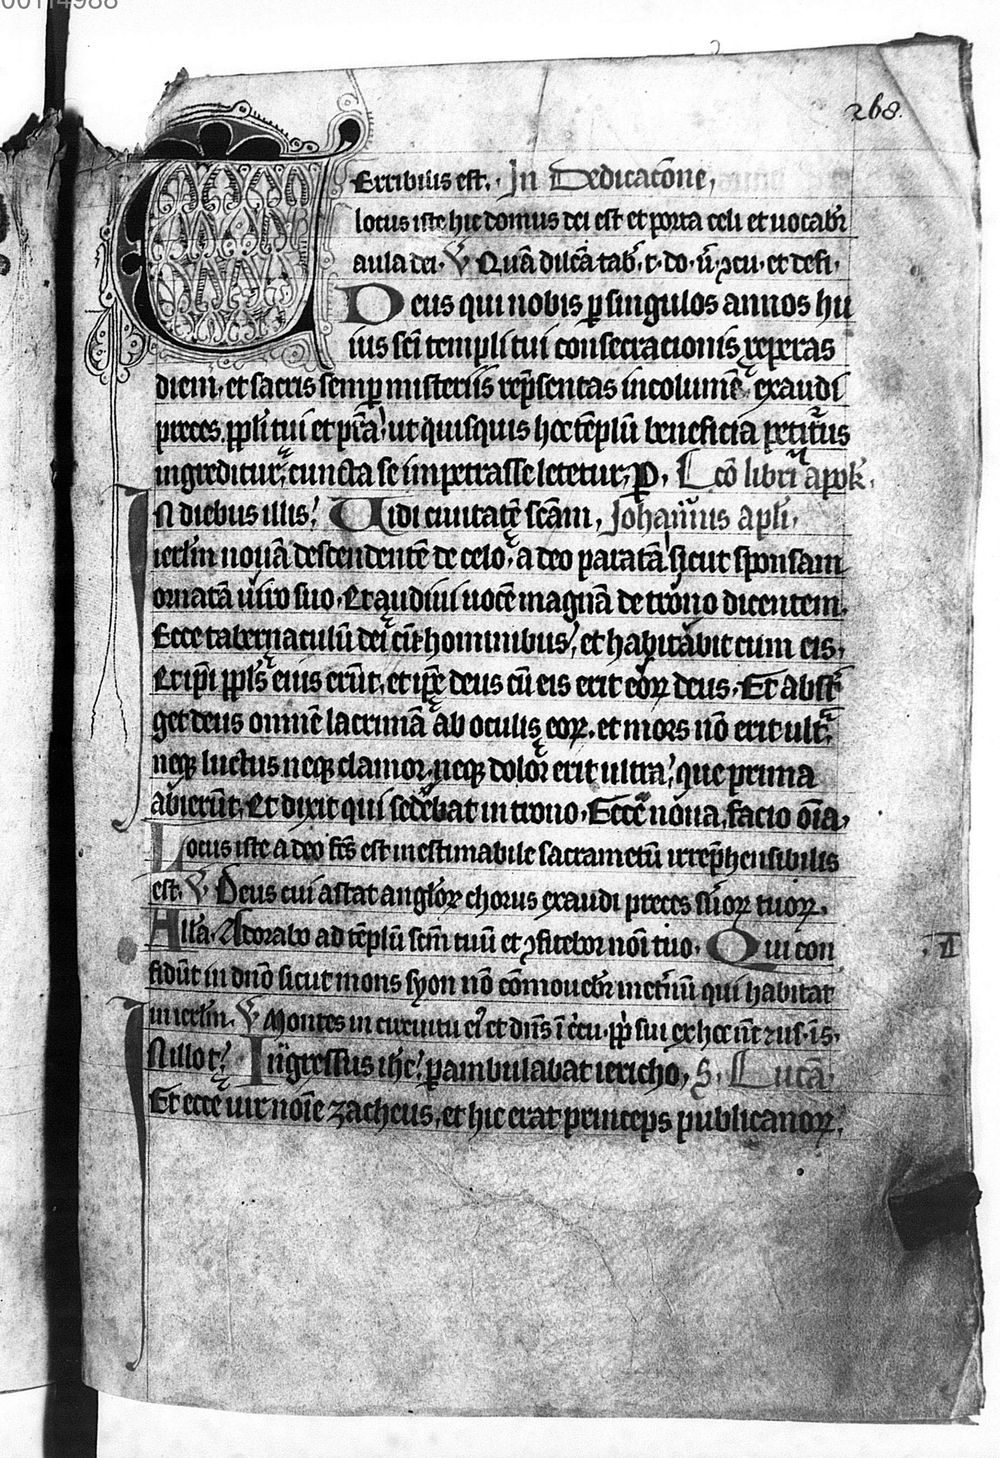 00114988
268.
TErribilis est. In Dedicacōne,
locus iste hic domus dei est et porta celi et uocabr̄
aula dei. V̄ Quā dilcā tab̄. t. do. ū. ꝯcu. et defi.
Deus qui nobis ꝑ singulos annos hu
ius scī templi tui consecracionis reperas
diem. et sacris semꝑ misteriis rep̄sentas incolumē. exaudi
preces. ppl̄i tui et p̄sta. ut quisquis hoc tēplū beneficia petiturus
ingreditur. cuncta se impetrasse letetur. P. Lcō libri apok.
IN diebus illis. Uidi ciuitatē scām, Johannis apl̄i.
ierl̄m nouā descendentē de celo. a deo paratā sicut sponsam
ornatā uiro suo. Et audiui uocē magnā de trono dicentem.
Ecce tabernaculū dei cū hominibus. et habitabit cum eis.
Et ip̄i ppl̄s eius erūt. et ip̄e deus cū eis erit eoꝝ deus. Et abst̄
get deus omnē lacrimā ab oculis eoꝝ. et mors nō erit ultᵃ.
neqꝫ luctus neqꝫ clamor. neqꝫ dolor erit ultra. que prima
abierūt. Et dixit qui sedebat in trono. Ecce noua facio oīa.
Locus iste a deo fc̄s est inestimabile sacrametū irrep̄hensibilis
est. V̄ Deus cui astat angl̄oꝝ chorus exaudi preces suoꝝ tuoꝝ.
All̄a. Adorabo ad tēplū scm̄ tuū et ꝯfitebor nōi tuo. Qui con
fidūt in dnō sicut mons syon nō cōmouebr̄ inet̄nū qui habitat
in ierl̄m. V̄ Montes in circuitu eiꝰ et dn̄s ī c̄cu. pp̄ sui ex hoc nc̄ ⁊ us. ī s.
IN illo t. Ingressus ihc̄. ꝑambulabat iericho, S. Lucā
Et ecce uir noīe zacheus. et hic erat princeps publicanoꝝ.